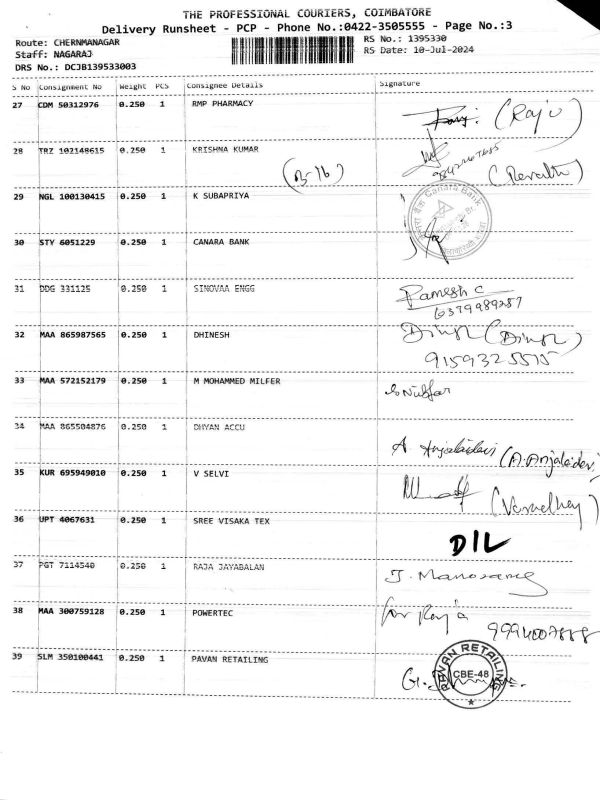 THE PROFESSIONAL COURIERS, COIMBATORE
Delivery Runsheet - PCP - Phone No.:0422-3505555 - Page No.:3
Route: CHERNMANAGAR
RS No.: 1395330
Staff: NAGARAJ
RS Date: 10-Jul-2024
DRS No.: DCJB139533003
S No Consignment No Weight PCS Consignee Details Signature
27 CDM 50312976 0.250 1 RMP PHARMACY
(Raju)
28 TRZ 102148615 0.250 1 KRISHNA KUMAR
(Revathi)
29 NGL 100130415 0.250 1 K SUBAPRIYA
Canara Bank
30 STY 6051229 0.250 1 CANARA BANK
31 DDG 331125 0.250 1 SINOVAA ENGG
Ramesh C
6379989287
32 MAA 865987565 0.250 1 DHINESH
9159325575
33 MAA 572152179 0.250 1 M MOHAMMED MILFER
34 MAA 865504876 0.250 1 DHYAN ACCU
A. Anjaladevi (A. Anjaladevi)
35 KUR 695949010 0.250 1 V SELVI
36 UPT 4067631 0.250 1 SREE VISAKA TEX
DIL
37 PGT 7114540 0.250 1 RAJA JAYABALAN
38 MAA 300759128 0.250 1 POWERTEC
for Raja
39 SLM 350100441 0.250 1 PAVAN RETAILING
PAVAN RETAILING
CBE-48